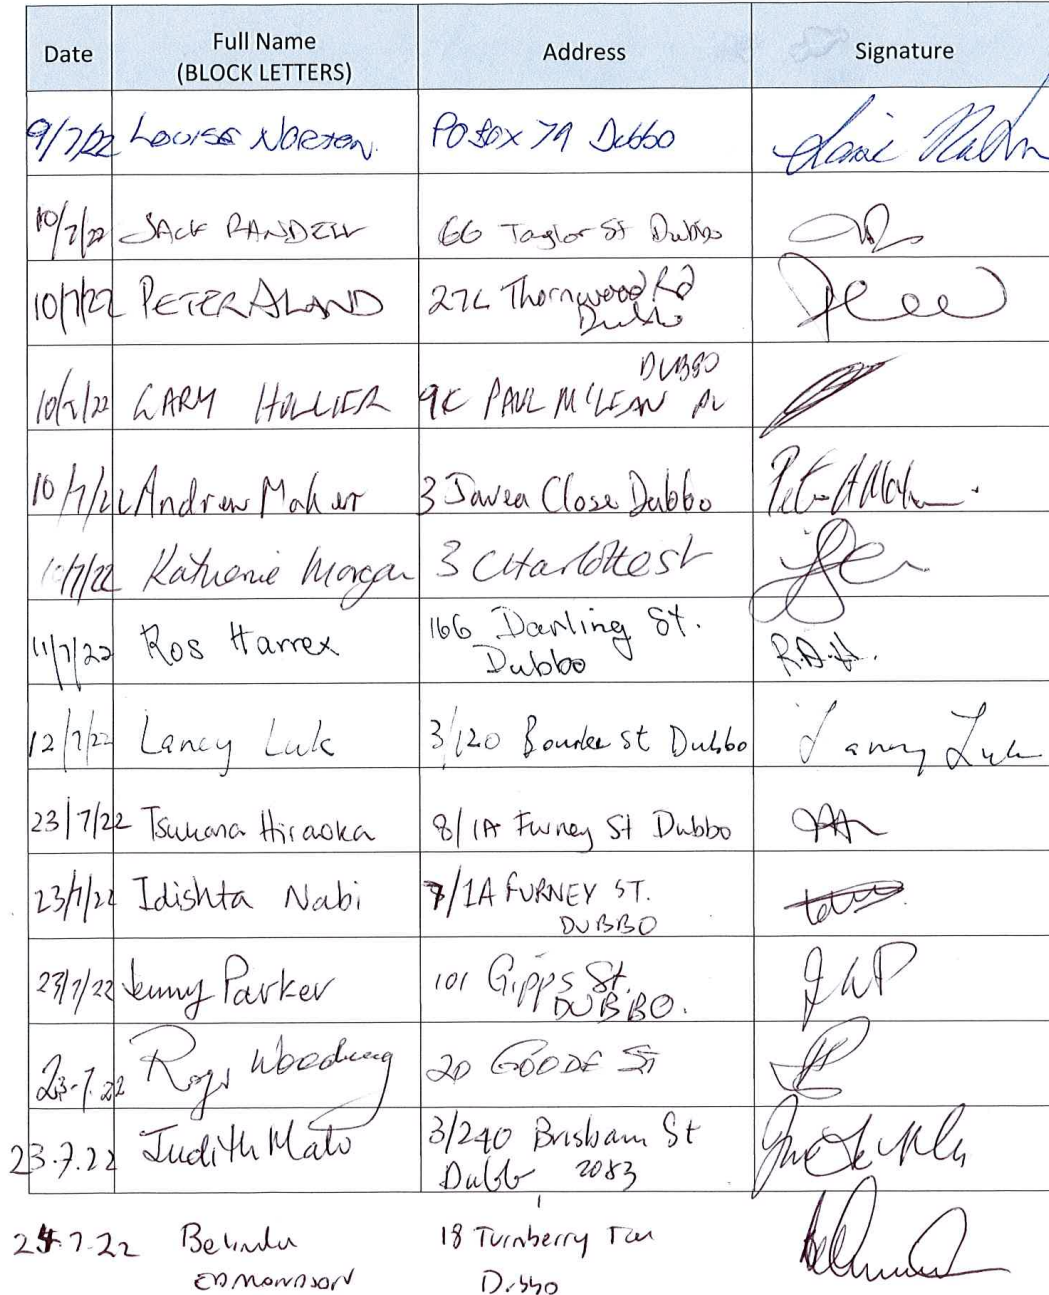 Date Full Name Address Signature
(BLOCK LETTERS)
9/7/22 Louise Norton. PO Box 79 Dubbo
10/7/22 JACK RANDELL 66 Taylor St Dubbo
10/7/22 PETER ALAND 27L Thornwood Rd
Dubbo
DUBBO
10/7/22 GARY HOLLIER 9C PAUL McLEAN AV
10/7/22 Andrew Maher 3 Javea Close Dubbo
10/7/22 Katherine Morgan 3 Charlotte st
11/7/22 Ros Harrex 166 Darling St. R.A.H.
Dubbo
12/7/22 Laney Luk 3/120 Bourke St Dubbo Laney Luk
23/7/22 Tsukasa Hiraoka 8/1A Furney St Dubbo
23/7/22 Idishta Nabi 7/1A FURNEY ST.
DUBBO
23/7/22 Jenny Parker 101 Gipps St.
DUBBO.
23.7.22 20 GOODE St
23.7.22 Judith Mato 3/240 Brisbane St
Dubbo 2083
24.7.22 Belinda 18 Turnberry
EDMONDSON Dubbo